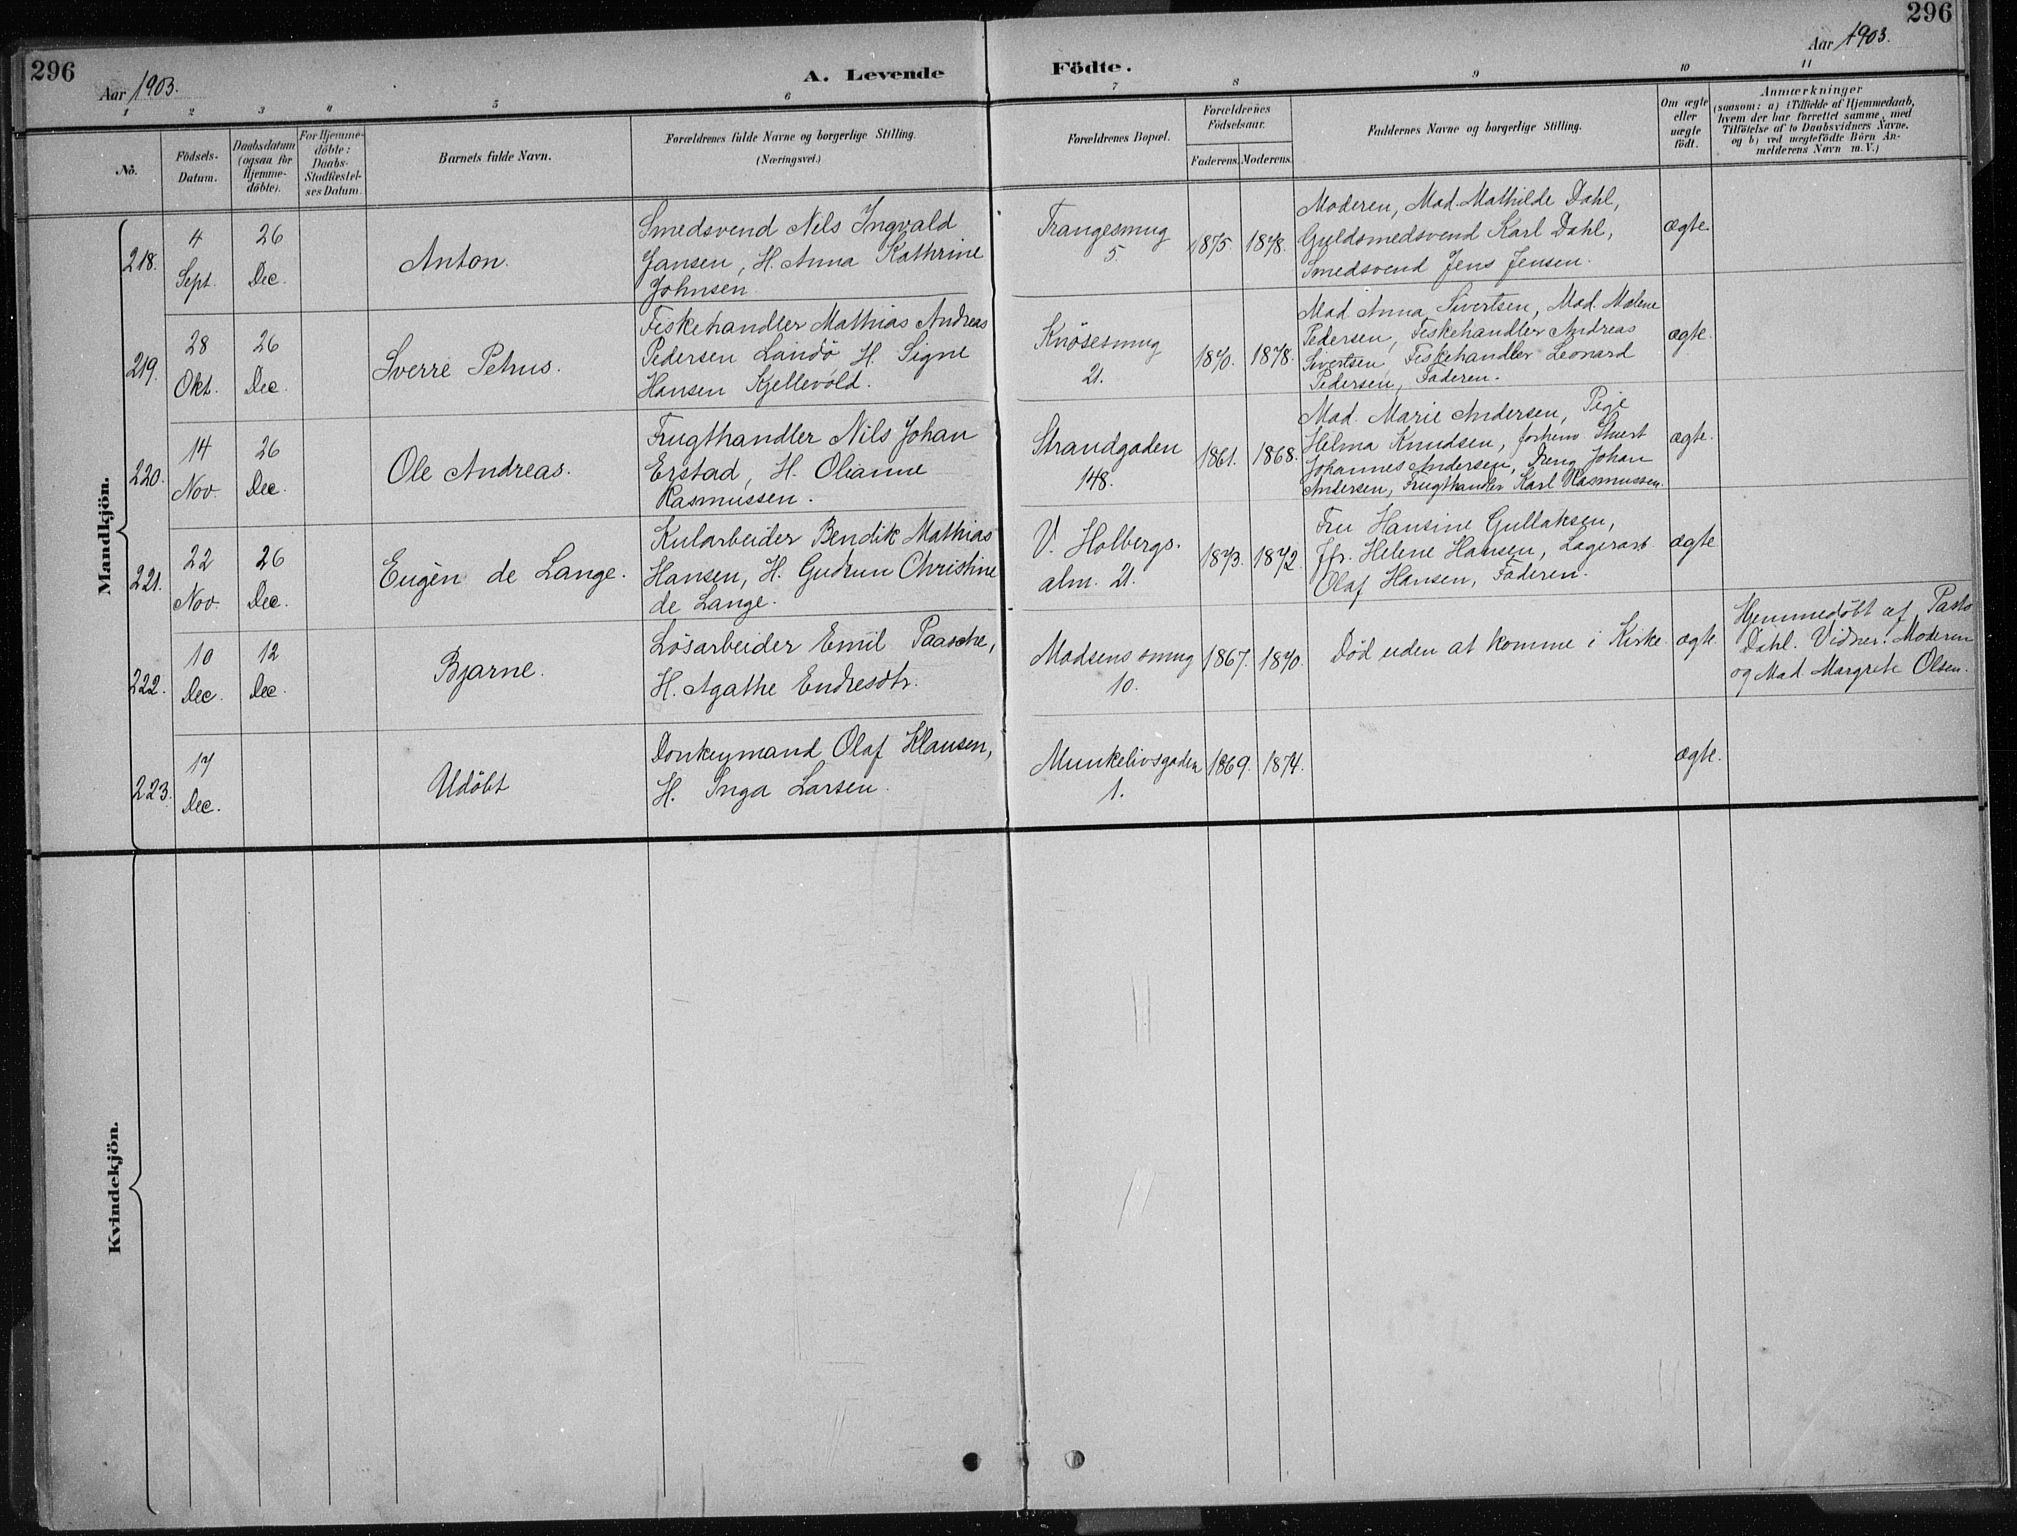 296
Aar 1903.
A. Levende Födte.
Aar 1903.
296
1 2 3 4 5 6 7 8 9 10 11
No.
Födsels-
Datum.
Daabsdatum
(ogsaa for
Hjemme-
döbte).
For Hjemme-
döbte:
Daabs-
Stadfæstel-
ses Datum.
Barnets fulde Navn.
Forældrenes fulde Navne og borgerlige Stilling.
(Næringsvei.)
Forældrenes Bopæl.
Forældrenes
Födselsaar.
Faderens. Moderens.
Faddernes Navne og borgerlige Stilling.
Om ægte
eller
uægte
födt.
Anmærkninger
(saasom: a) i Tilfælde af Hjemmedaab,
hvem der har forrettet samme, med
Tilföielse af to Daabsvidners Navne.
og b) ved uægtefödte Börn An-
melderens Navn m. V.)
Mandkjön.
218.
4
Sept.
26
Dec.
Anton.
Smedsvend Nils Ingvald
Jansen, H. Anna Kathrine
Johnsen.
Trangesmug
5.
1875. 1878.
Moderen, Mad. Mathilde Dahl,
Guldsmedsvend Karl Dahl,
Smedsvend Jens Jensen.
ægte.
219.
28
Okt.
26
Dec.
Sverre Petrus.
Fiskehandler Mathias Andreas
Pedersen Landö H. Signe
Hansen Kjellevold.
Knösesmug
21.
1870. 1878.
Mad Anna Sivertsen, Mad. Malene
Pedersen, Fiskehandler Andreas
Sivertsen, Fiskehandler Leonard
Pedersen, Faderen.
ægte.
220.
14
Nov.
26
Dec.
Ole Andreas.
Frugthandler Nils Johan
Erstad, H. Olianne
Rasmussen.
Strandgaden
148.
1861. 1868.
Mad. Marie Andersen, Pige
Helma Knudsen, forhenv. Stuert
Johannes Andersen, Dreng Johan
Andersen, Frugthandler Karl Rasmussen.
ægte.
221.
22
Nov.
26
Dec.
Eugèn de Lange.
Kularbeider Bendik Mathias
Hansen, H. Gudrun Christine
de Lange.
V. Holbergs.
alm. 21.
1873. 1872.
Fru Hansine Gullaksen,
Jfr. Helene Hansen, Lagerarb.
Olaf Hansen, Faderen.
ægte
222.
10
Dec.
12
Dec.
Bjarne.
Lösarbeider Emil Paasche,
H. Agathe Endresdtr.
Madsens smug
10.
1867. 1870.
Död uden at komme i Kirke.
ægte.
Hjemmedöbt af Pastor
Dahl. Vidner: Moderen
og Mad. Margrete Olsen.
223.
17
Dec.
Udöbt
Donkeymand Olaf Klausen,
H. Inga Larsen.
Munkelivsgaden
1.
1869. 1874.
ægte.
Kvindekjön.